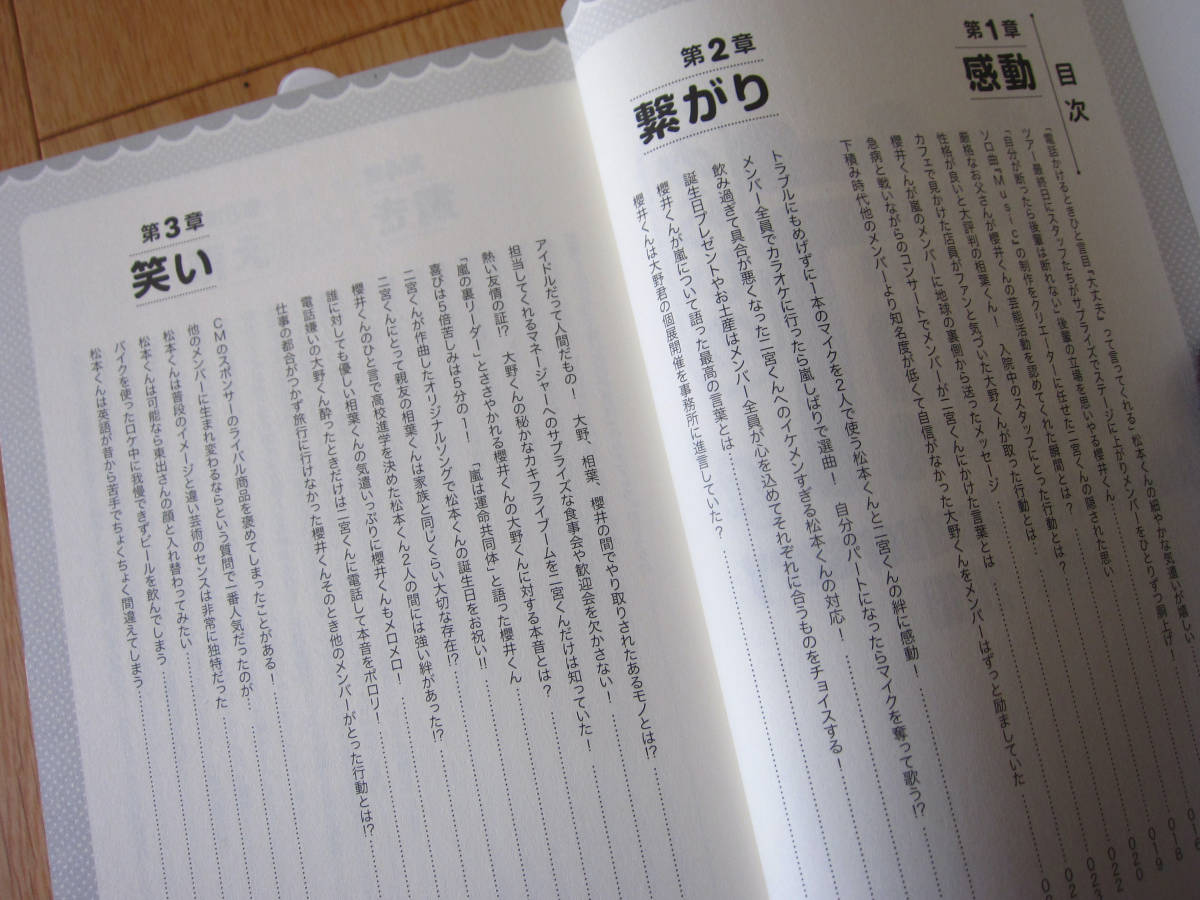 目次
第1章
感動
「電話かけるときひと言目『大丈夫』って言ってくれる」松本くんの細やかな気遣いが嬉しい
ツアー最終日にスタッフたちがサプライズでステージに上がりメンバーをひとりずつ胴上げ!
「自分が断ったら後輩は断れない」後輩の立場を思いやる櫻井くん
ソロ曲『Music』の制作をクリエーターに任せた二宮くんの隠された思い
厳格なお父さんが櫻井くんの芸能活動を認めてくれた瞬間とは?
性格が良いと大評判の相葉くん! 入院中のスタッフにとった行動とは?
カフェで見かけた店員がファンと気づいた大野くんが取った行動とは
櫻井くんが嵐のメンバーに地球の裏側から送ったメッセージ
急病と戦いながらのコンサートでメンバーが二宮くんにかけた言葉とは
下積み時代他のメンバーより知名度が低くて自信がなかった大野くんをメンバーはずっと励ましていた
018
019
020
022
023
第2章
繋がり
トラブルにもめげずに1本のマイクを2人で使う松本くんと二宮くんの絆に感動!
メンバー全員でカラオケに行ったら嵐しばりで選曲! 自分のパートになったらマイクを奪って歌う!?
飲み過ぎて具合が悪くなった二宮くんへのイケメンすぎる松本くんの対応!
誕生日プレゼントやお土産はメンバー全員が心を込めてそれぞれに合うものをチョイスする!
櫻井くんが嵐について語った最高の言葉とは
櫻井くんは大野君の個展開催を事務所に進言していた?
アイドルだって人間だもの! 大野、相葉、櫻井の間でやり取りされたあるモノとは!?
担当してくれるマネージャーへのサプライズな食事会や歓迎会を欠かさない!
熱い友情の証!? 大野くんの秘かなカキフライブームを二宮くんだけは知っていた!
「嵐の裏リーダー」とささやかれる櫻井くんの大野くんに対する本音とは?
喜びは5倍苦しみは5分の1! 「嵐は運命共同体」と語った櫻井くん
二宮くんが作曲したオリジナルソングで松本くんの誕生日をお祝い!!
二宮くんにとって親友の相葉くんは家族と同じくらい大切な存在!?
櫻井くんのひと言で高校進学を決めた松本くん2人の間には強い絆があった!?
誰に対しても優しい相葉くんの気遣いっぷりに櫻井くんもメロメロ!
電話嫌いの大野くん酔ったときだけは二宮くんに電話して本音をポロリ!
仕事の都合がつかず旅行に行けなかった櫻井くんそのとき他のメンバーがとった行動とは!?
第3章
笑い
CMのスポンサーのライバル商品を褒めてしまったことがある!
他のメンバーに生まれ変わるならという質問で一番人気だったのが
松本くんは普段のイメージと違い芸術のセンスは非常に独特だった
松本くんは可能なら東出さんの顔と入れ替わってみたい
バイクを使ったロケ中に我慢できずビールを飲んでしまう
松本くんは英語が昔から苦手でちょくちょく間違えてしまう